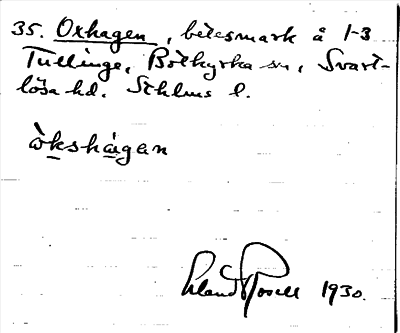 35. Oxhagen, betesmark å 1-3
Tullinge, Botkyrka sn, Svart-
lösa hd. Sthlms l.
ò̀kshàgan
Erland Rosell 1930.